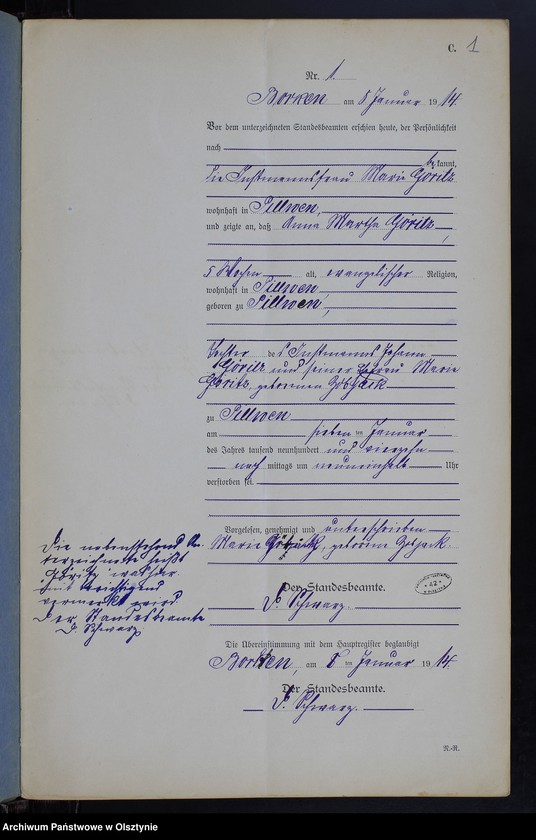 C. 1
Nr. 1.
Borken am 8. Januar 1914.
Vor dem unterzeichneten Standesbeamten erschien heute, der Persönlichkeit
nach
bekannt,
die Instmannsfrau Marie Göritz
wohnhaft in Pillwen,
und zeigte an, daß Anna Martha Göritz,
5 Wochen alt, evangelischer Religion,
wohnhaft in Pillwen
geboren zu Pillwen,
Tochter des Instmanns Johann
Göritz und seiner Ehefrau Marie
Göritz, geborenen
zu Pillwen
am sieben ten Januar
des Jahres tausend neunhundert und vierzehn
nach mittags um neuneinhalb Uhr
verstorben sei.
Vorgelesen, genehmigt und unterschrieben
Marie geborene
Die nebenstehend Un-
terzeichnete heißt
Göritz, welches
berichtigend
vermerkt wird
Der Standesbeamte
D. Schwarz
Der Standesbeamte.
D. Schwarz.
42
Die Übereinstimmung mit dem Hauptregister beglaubigt
Borken, am 8 ten Januar 1914.
Der Standesbeamte.
D. Schwarz.
N.-R.
Archiwum Państwowe w Olsztynie